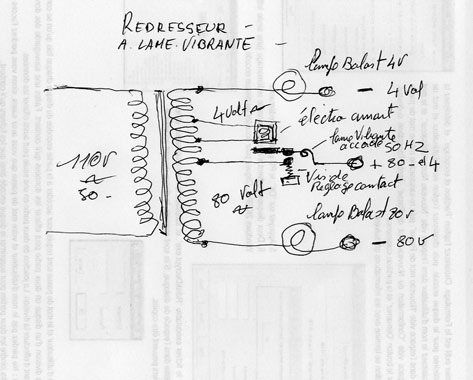 REDRESSEUR -
A. LAME. VIBRANTE -
lampe Balast 4V
- 4 Vol
4 Volt
électro aimant
lame Vibrante
accordé 50 HZ
110V
50 -
+ 80 - et 4
Vis de
Reglage contact
80 Volt
lampe Balast 80v
- 80v